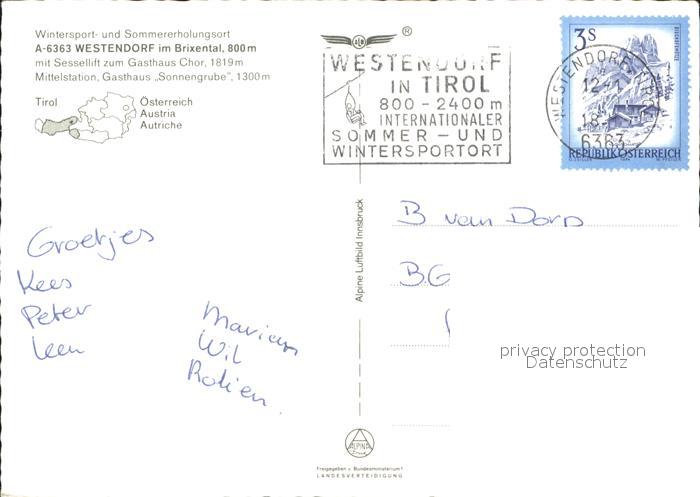 Wintersport- und Sommererholungsort
A-6363 WESTENDORF im Brixental, 800 m
mit Sessellift zum Gasthaus Chor, 1819 m
Mittelstation, Gasthaus „Sonnengrube", 1300 m
Tirol
Österreich
Austria
Autriche
®
WESTENDORF
IN TIROL
800 - 2400 m
INTERNATIONALER
SOMMER - UND
WINTERSPORTORT
3 S
WESTENDORF
6363
REPUBLIK ÖSTERREICH
Alpine Luftbild Innsbruck
B van Dorp
BG
Groetjes
Kees
Peter
Leen
Wil
privacy protection
Datenschutz
ALPINA
Freigegeben v. Bundesministerium f.
LANDESVERTEIDIGUNG